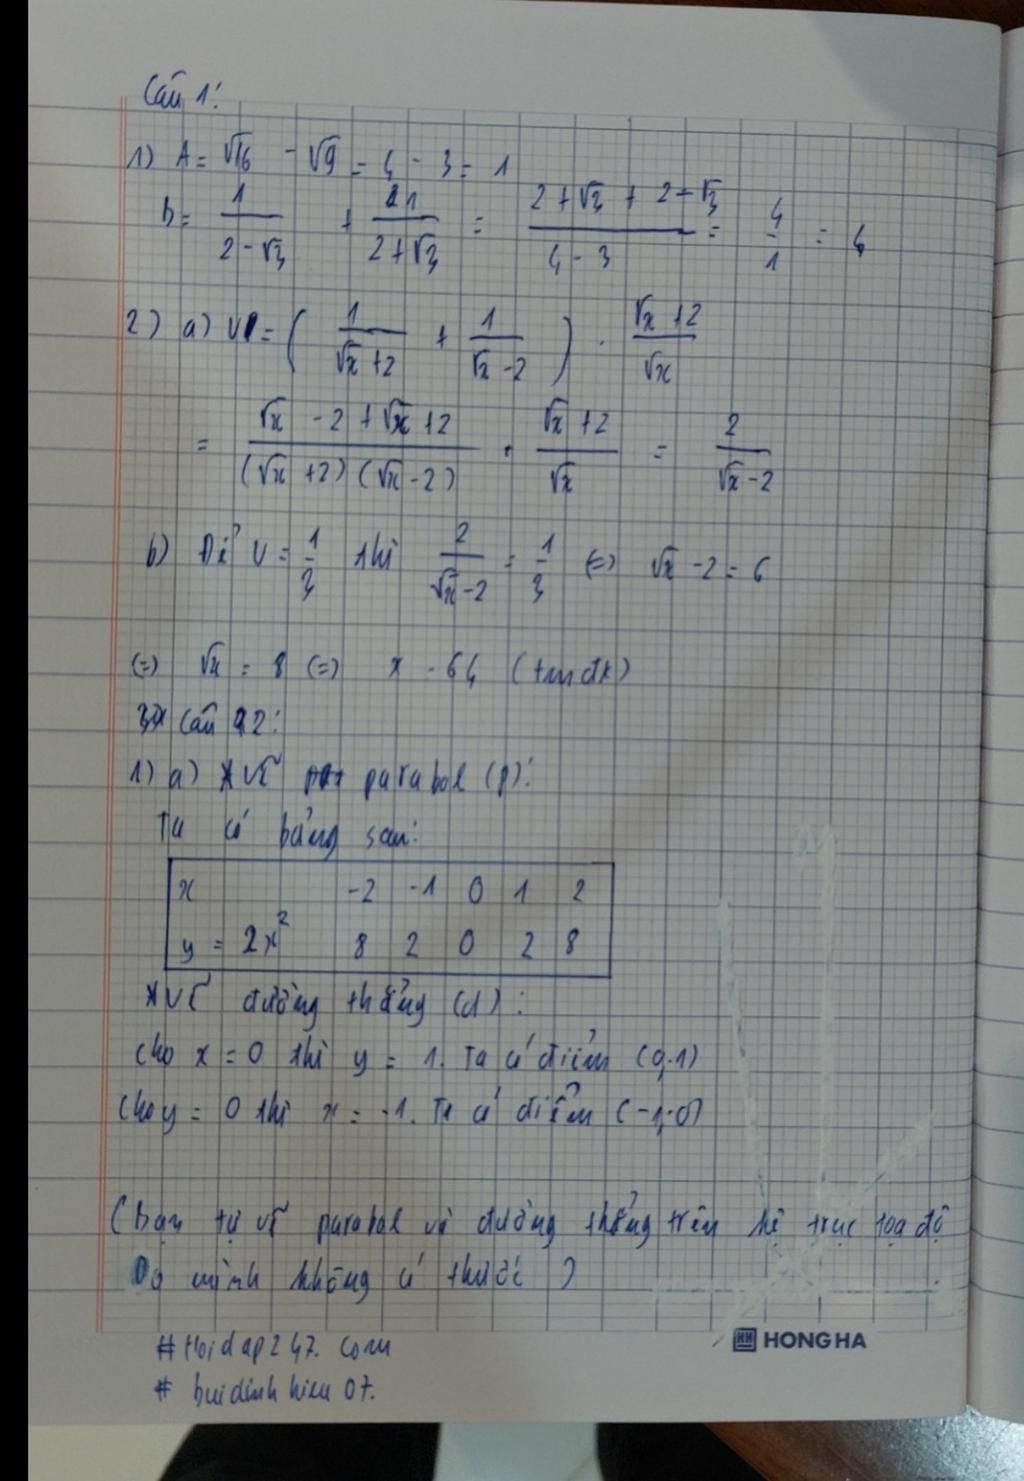 Câu 1:
1) A = √16 - √9 = 4 - 3 = 1
B = 1/(2-√3) + 1/(2+√3) = (2+√3+2-√3)/(4-3) = 4/1 = 4
2) a) V = (1/(√x+2) + 1/(√x-2)) . (√x+2)/√x
= (√x-2+√x+2)/((√x+2)(√x-2)) . (√x+2)/√x = 2/(√x-2)
b) Để V = 1/3 thì 2/(√x-2) = 1/3 (=) √x - 2 = 6
(=) √x = 8 (=) x = 64 (tmđk)
Câu 2:
1) a) * Vẽ parabol (P):
Ta có bảng sau:
x -2 -1 0 1 2
y = 2x² 8 2 0 2 8
* Vẽ đường thẳng (d):
Cho x = 0 thì y = 1. Ta có điểm (0;1)
Cho y = 0 thì x = -1. Ta có điểm (-1;0)
(Bạn tự vẽ parabol và đường thẳng trên hệ trục tọa độ
Do mình không có thước)
# Hoidap247.com
# buidinhhieu07.
HH HONG HA